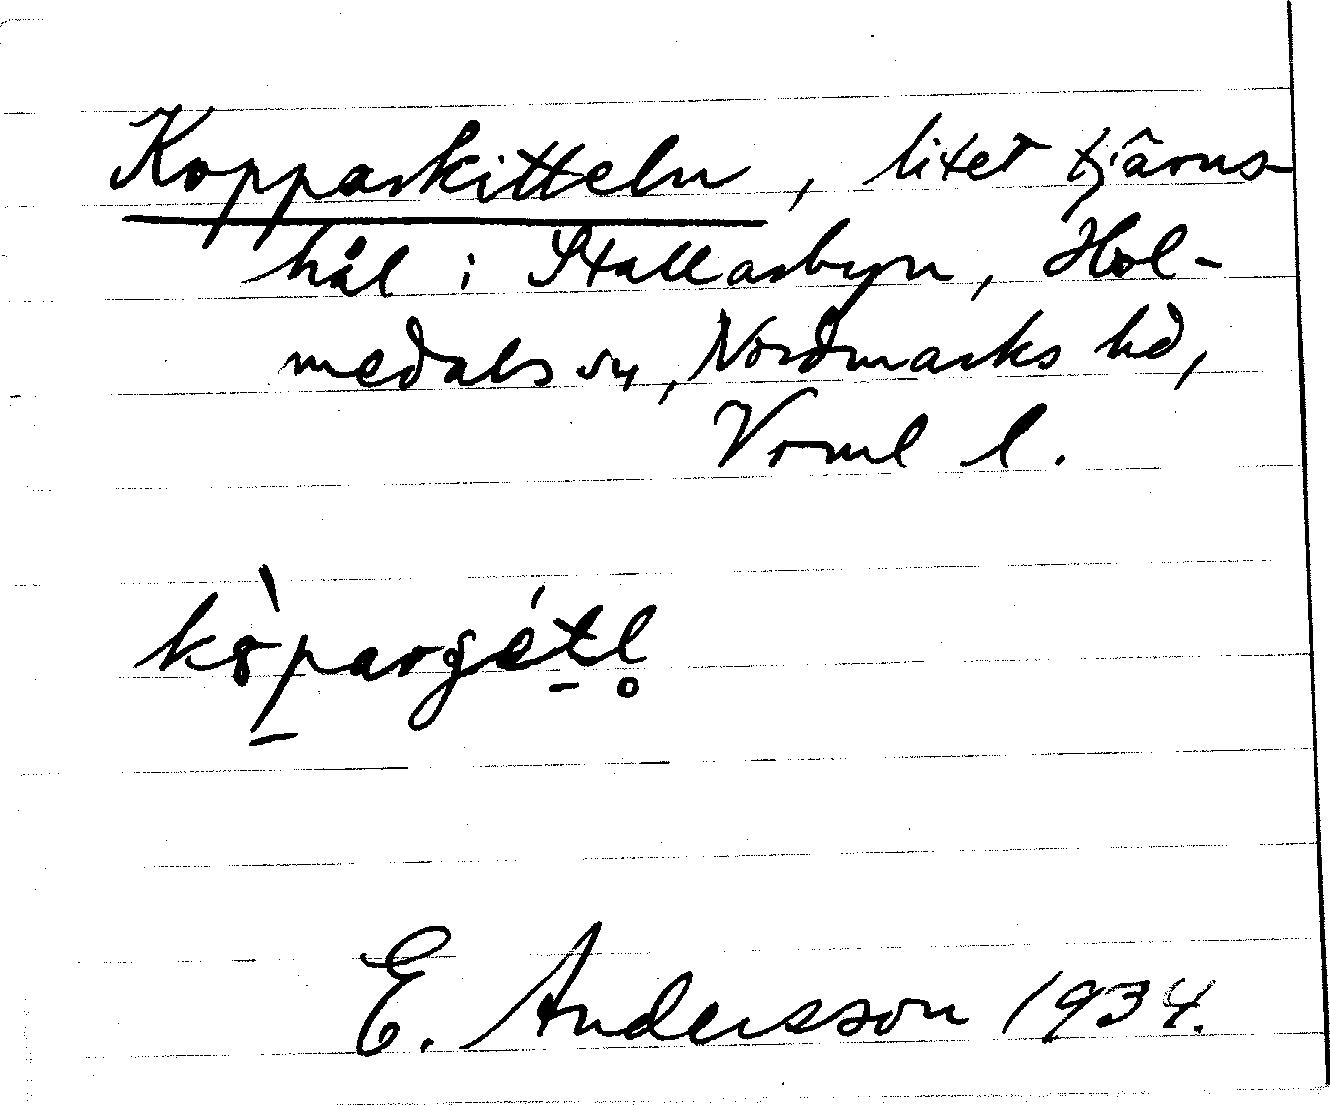 Kopparkitteln, litet tjärns-
hål i Stallarbyn, Hol-
medals sn, Nordmarks hd,
Vrml l.
E. Andersson 1934.